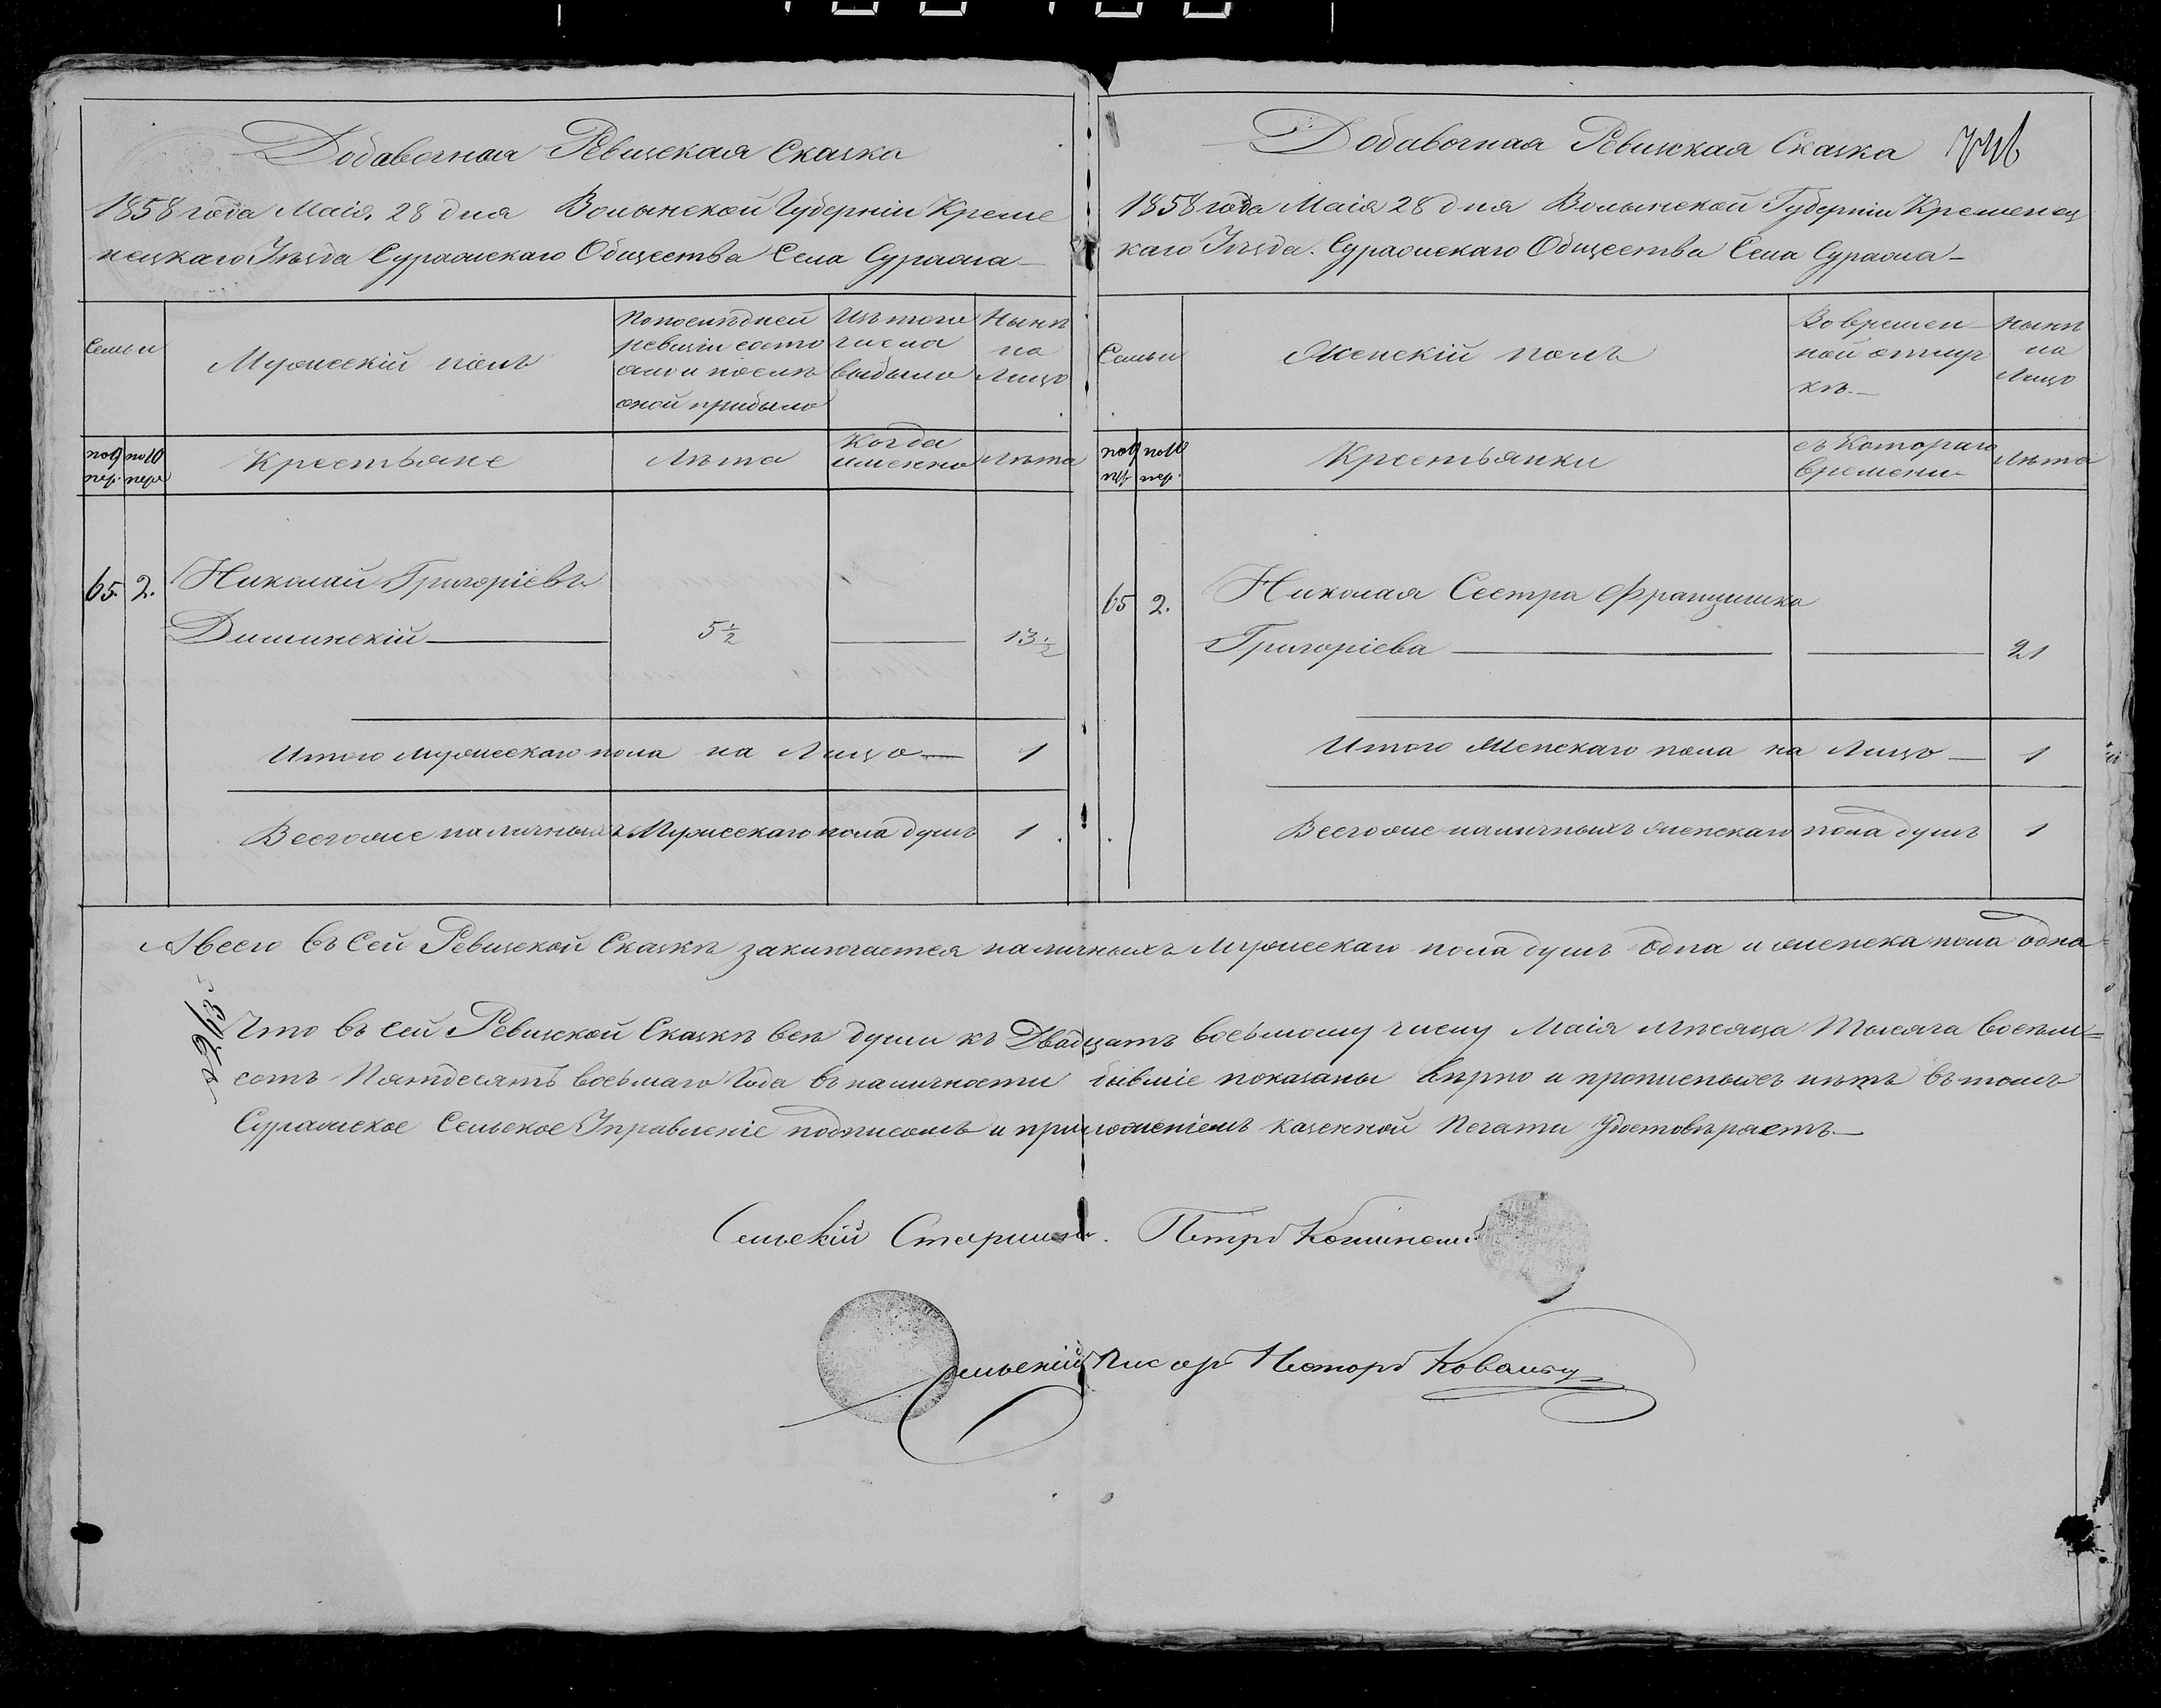 Добавочная Ревизская Сказка
1858 года Маія 28 дня Волынской Губерніи Креме
нецкаго Уѣзда Суражскаго Общества Села Суража
Семьи
Мужескій полъ
По послѣдней
ревизіи состо
яло и послѣ
оной прибыло
Изъ того
числа
выбыло
Нынѣ
на
Лицо
по 9 пер.
по 10 пере
Крестьяне
Лѣта
Когда
именно
Лѣта
65. 2. Николай Григоріевъ
Дишинскій 5½ 13½
Итого мужескаго пола на Лицо 1
Всегоже наличныхъ Мужескаго пола душъ 1
Добавочная Ревизская Сказка
1858 года Маія 28 дня Волынской Губерніи Кременец
каго Уѣзда. Суражскаго Общества Села Суража
Семьи
Женскій полъ
Во времен
ной отлуч
кѣ.
Нынѣ
на
Лицо
по 9 пер.
по 10 пер.
Крестьянки
съ Котораго
времени
Лѣта
65 2. Николая Сестра Францишка
Григоріева 21
Итого Женскаго пола на Лицо 1
Всегоже наличныхъ женскаго пола душъ 1
А всего въ Сей Ревизской Сказкѣ заключается наличныхъ Мужескаго пола душъ одна и женска пола одна
Что въ сей Ревизской Сказкѣ всѣ души къ Двадцать восьмому числу Маія мѣсяца Тысяча восем
сотъ Пятдесятъ восьмаго Года въ наличности бывшіе показаны вѣрно и прописныхъ нѣтъ въ томъ
Суражское Сельское Управленіе подписомъ и приложеніемъ казенной Печати Удостовѣряетъ
Сельскій Старшина Петръ
Сельскій Писарь Несторъ